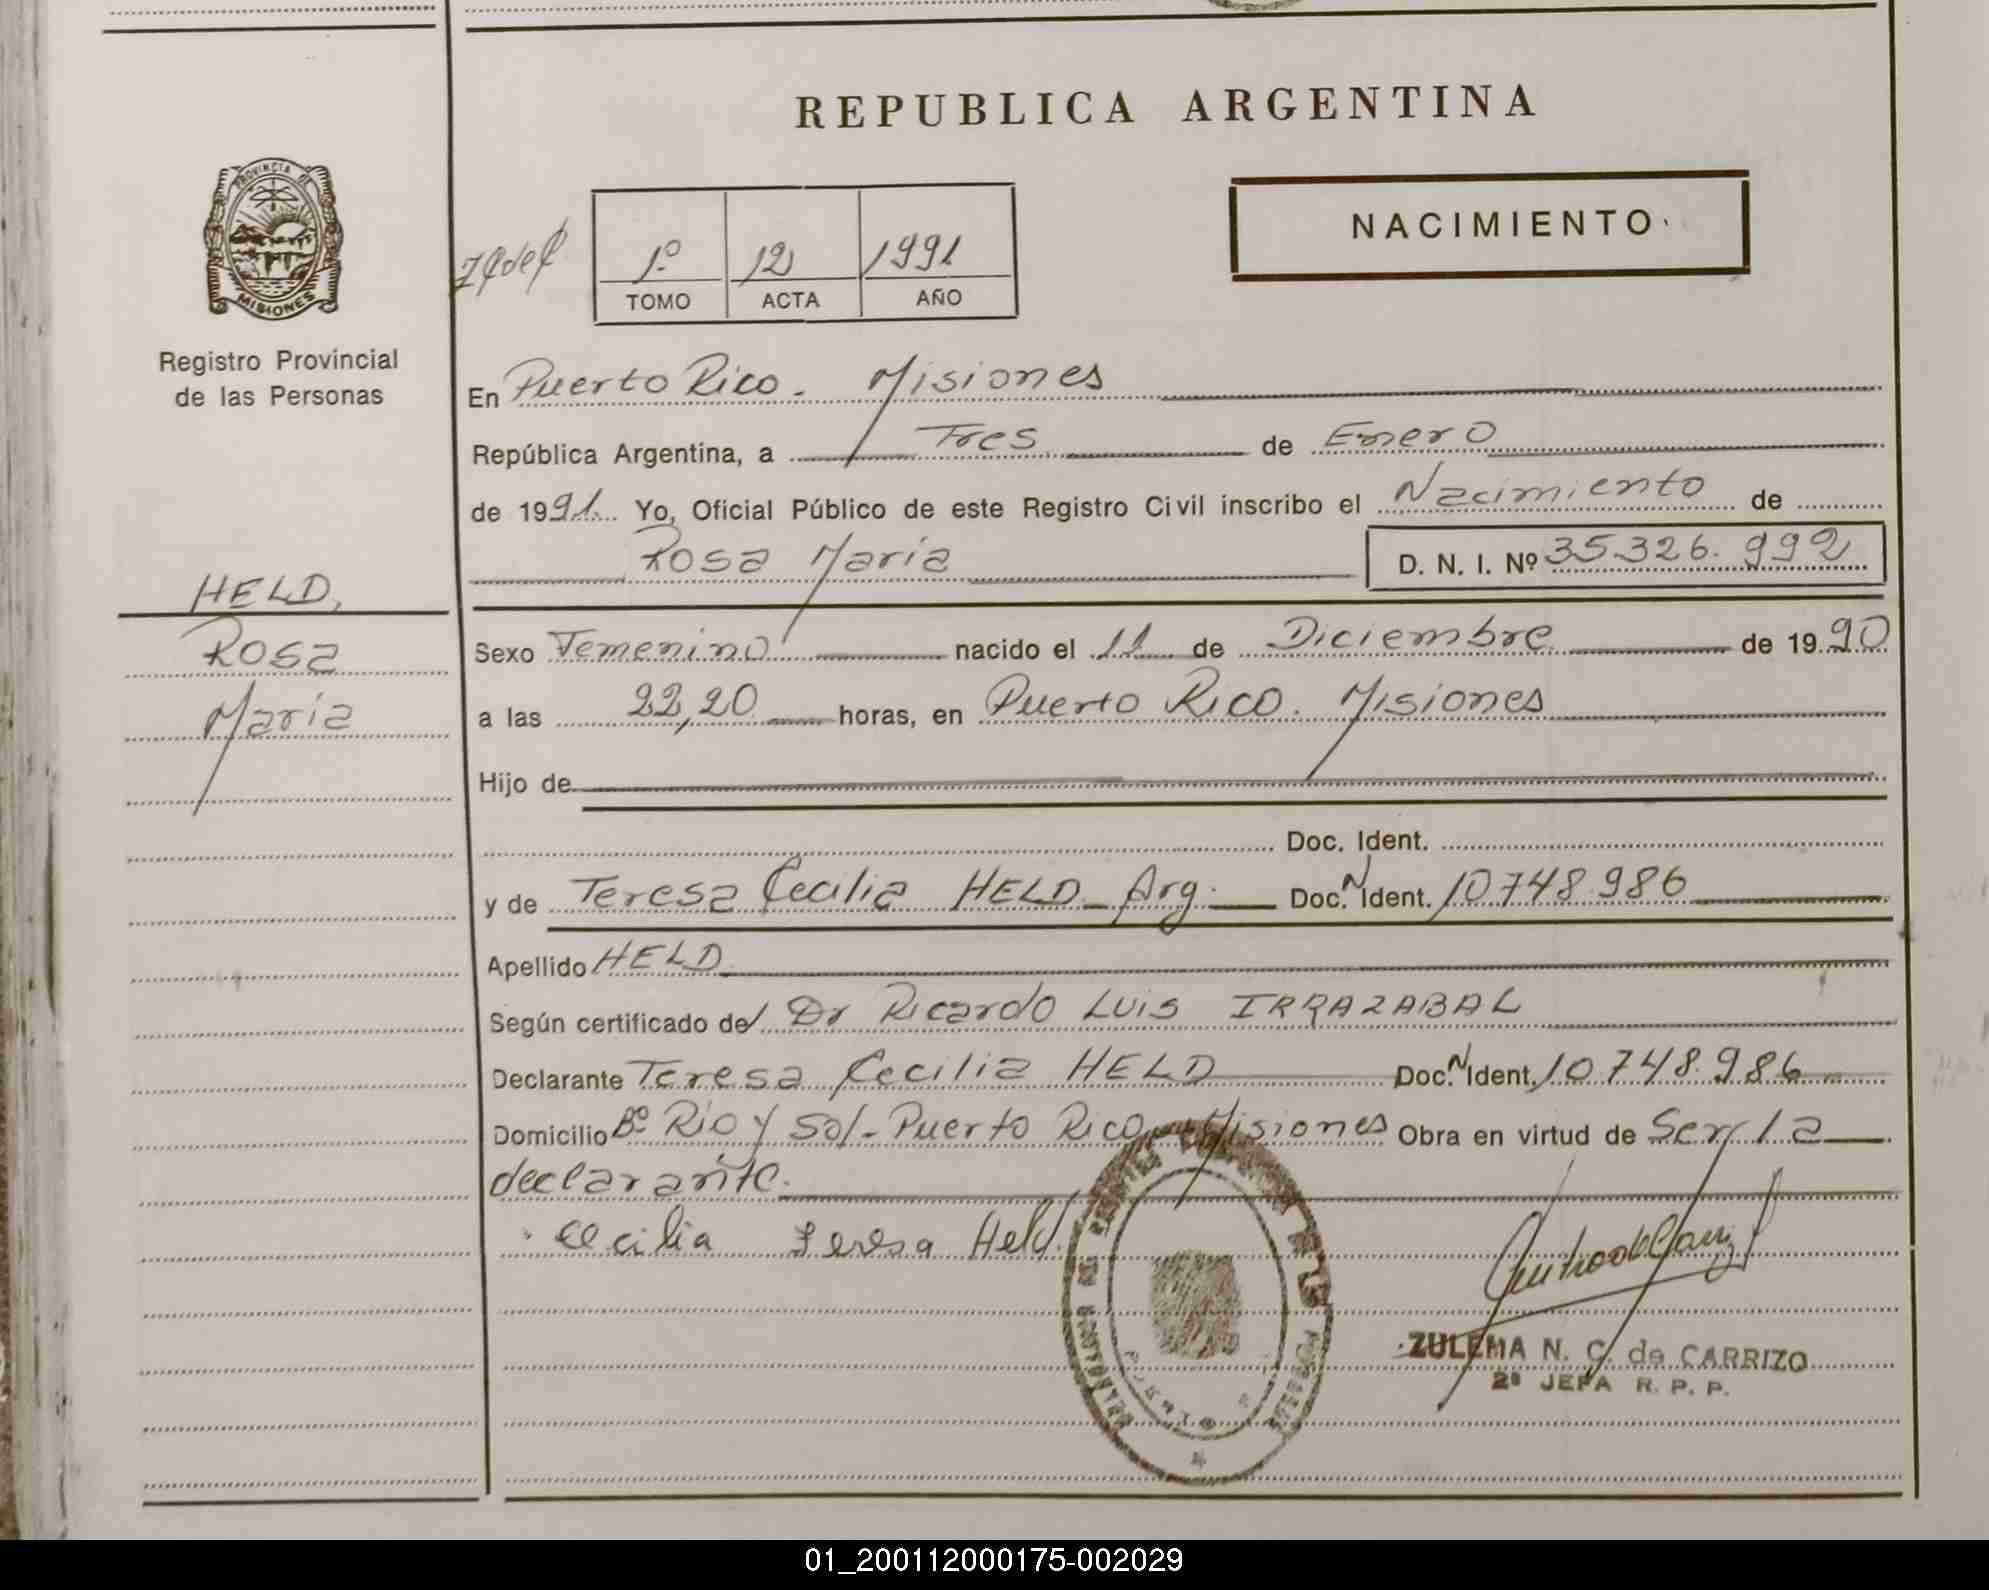 REPUBLICA ARGENTINA
PROVINCIA DE
MISIONES
Registro Provincial
de las Personas
NACIMIENTO
1º 12 1991
TOMO ACTA AÑO
En Puerto Rico - Misiones
República Argentina, a Tres de Enero
de 1991. Yo, Oficial Público de este Registro Civil inscribo el Nacimiento de
Rosa María D. N. I. Nº 35.326.992
HELD,
Rosa
María
Sexo Femenino nacido el 11 de Diciembre de 1990
a las 22,20 horas, en Puerto Rico. Misiones
Hijo de
Doc. Ident.
y de Teresa Cecilia HELD - Arg. Doc. N Ident. 10.748.986
Apellido HELD
Según certificado del Dr Ricardo Luis IRRAZABAL
Declarante Teresa Cecilia HELD Doc. N Ident. 10.748.986
Domicilio Bº Rio y Sol - Puerto Rico - Misiones Obra en virtud de Ser la
declarante.
Cecilia Teresa Held
ZULEMA N. C. de CARRIZO
2ª JEFA R. P. P.
01_200112000175-002029